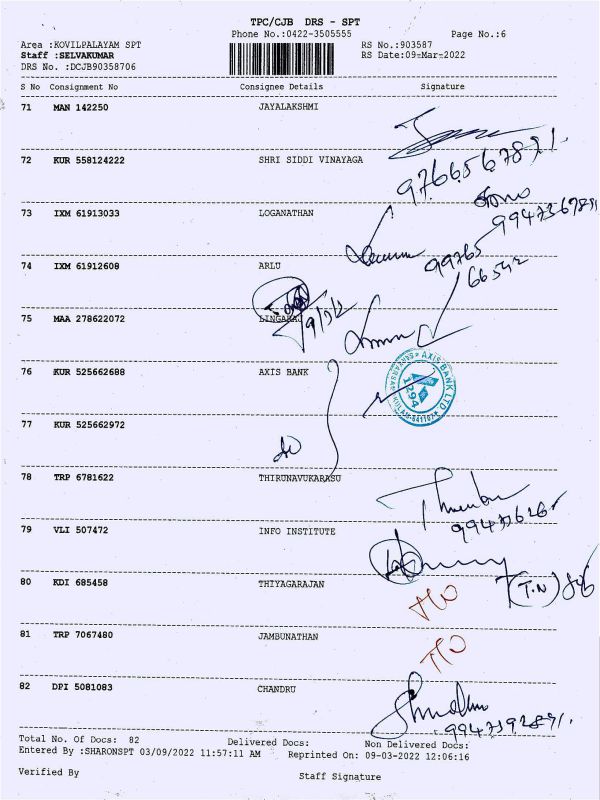 TPC/CJB DRS - SPT
Phone No.:0422-3505555 Page No.:6
Area :KOVILPALAYAM SPT RS No.:903587
Staff :SELVAKUMAR RS Date:09-Mar-2022
DRS No. :DCJB90358706
S No Consignment No Consignee Details Signature
71 MAN 142250 JAYALAKSHMI
72 KUR 558124222 SHRI SIDDI VINAYAGA
9766567891.
73 IXM 61913033 LOGANATHAN
9947367891
74 IXM 61912608 ARLU
99765
66542
75 MAA 278622072 LINGARAJ
76 KUR 525662688 AXIS BANK
AXIS BANK LTD
1294
77 KUR 525662972
78 TRP 6781622 THIRUNAVUKARASU
79 VLI 507472 INFO INSTITUTE
80 KDI 685458 THIYAGARAJAN
(T.N)
81 TRP 7067480 JAMBUNATHAN
82 DPI 5081083 CHANDRU
Total No. Of Docs: 82 Delivered Docs: Non Delivered Docs:
Entered By :SHARONSPT 03/09/2022 11:57:11 AM Reprinted On: 09-03-2022 12:06:16
Verified By Staff Signature